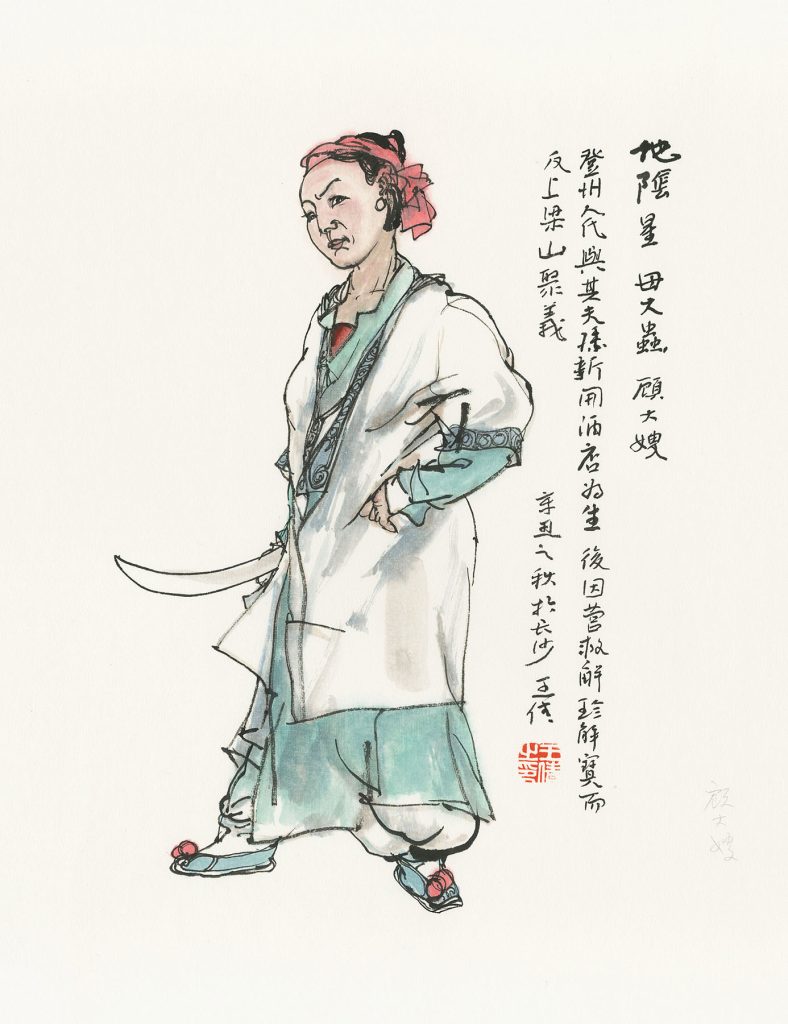 地陰星 母大蟲 顧大嫂
登州人氏與其夫孫新開酒店为生後因營救解珍解寶而
反上梁山聚義
辛丑之秋於长沙 王
顧大嫂